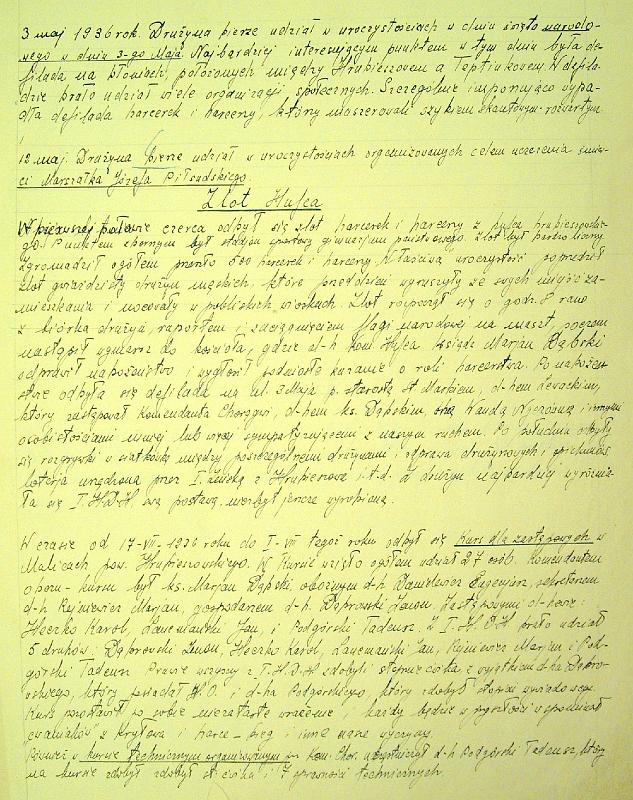 3 maj 1936 rok. Drużyna bierze udział w uroczystościach w dniu święta narodo-
wego w dniu 3-go Maja. Najbardziej interesującym punktem w tym dniu była de-
filada na błoniach, położonych między Hrubieszowem a Teptiukowem. W defila-
dzie brało udział wiele organizacji społecznych. Szczególnie imponująco wypa-
dła defilada harcerek i harcerzy, którzy maszerowali szykiem skautowym-rozwartym.
12 maj. Drużyna bierze udział w uroczystościach organizowanych celem uczczenia śmier-
ci Marszałka Józefa Piłsudskiego.
Zlot Hufca
W pierwszej połowie czerwca odbył się zlot harcerek i harcerzy z hufca hrubieszowskie-
go. Punktem zbornym był stadjon sportowy gimnazjum państwowego. Zlot był bardzo liczny
zgromadził ogółem ponad 600 harcerek i harcerzy. Właściwą uroczystość poprzedził
zlot gwiaździsty drużyn męskich, które poprzedniego wyruszyły ze swych miejsc za-
mieszkania i nocowały w pobliskich wioskach. Zlot rozpoczął się o godz. 8 rano
z biórką drużyn, raportem i zaciągnięciem flagi narodowej na maszt, poczem
nastąpił wymarsz do kościoła, gdzie d-h kom. Hufca ksiądz Marjan Dąbski
odprawił nabożeństwo i wygłosił podniosłe kazanie o roli harcerstwa. Po nabożeń-
stwie odbyła się defilada na ul. 3 Maja p. starostą St. Markiem, d-hem Lewackim,
który zastępował Komendanta Chorągwi, d-hem ks. Dąbskim, oraz Wandą i innymi
osobistościami mniej lub więcej sympatyzującemi z naszym ruchem. Po południu odbyły
się rozgrywki w siatkówkę między poszczególnemi drużynami i
loterja urządzona przez I. żeńską z Hrubieszowa i.t.d. Z drużyn najbardziej wyróżni-
ła się I.H.D.H. swą postawą, niezbyt jeszcze wyrobioną.
W czasie od 17-VII-1936 roku do I-VII tegoż roku odbył się Kurs dla zastępowych w
Malicach pow. Hrubieszowskiego. W Kursie wzięło ogółem udział 27 osób. Komendantem
obozu-kursu był ks. Marjan Dąbski, oboźnym d-h Danilewicz Eugenjusz, sekretarzem
d-h Marjan, gospodarzem d-h. Dąbrowski Zenon. Zastępowymi d-howie:
Heczko Karol, Jan, i Podgórski Tadeusz. Z I-H.D.H brało udział
5 druhów: Dąbrowski Zenon, Heczko Karol, Jan, Marjan i Pod-
górski Tadeusz. Prawie wszyscy z I.H.D.H zdobyli stopnie ćwika z wyjątkiem d-ha Dąbro-
wskiego, który posiadał H.O. i d-ha Podgórskiego, który zdobył stopień wywiadowcy.
Kurs pozostawił po sobie niezatarte wrażenie i każdy będzie w przyszłości wspominał
z Kryłowa i harce - bieg i inne nasze wyczyny.
Również w kursie technicznym organizowanym Kom. Chor. uczestniczył d-h Podgórski Tadeusz, który
na kursie zdobył zdobył st. ćwika i 7 sprawności technicznych.